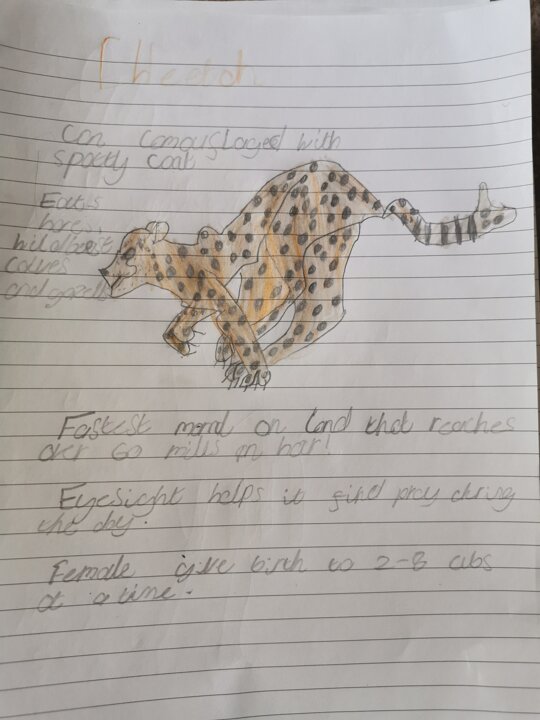 Cheetah
Can camouslaged with
spotty coat
Eats
hares,
wildbeest
calves
and gazelle
Fastest mamal on land that reaches
over 60 miles an hour!
Eyesight helps it find prey during
the day.
Female give birth to 2-8 cubs
at a time.